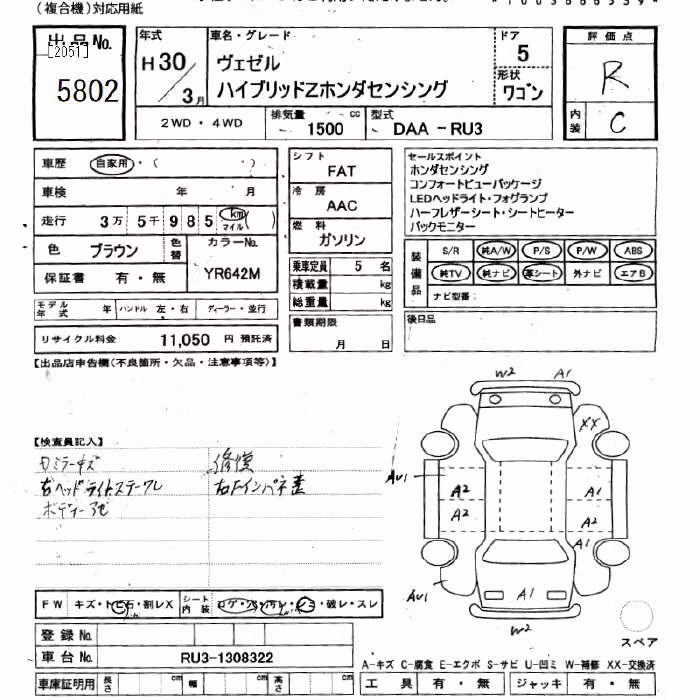 (複合機)対応用紙
出品No.
[2051]
5802
年式
H30/3月
車名・グレード
ヴェゼル
ハイブリッドZホンダセンシング
ドア
5
形状
ワゴン
評価点
R
内装
C
2WD ・ 4WD
排気量
1500 cc
型式
DAA-RU3
車歴 自家用・( )
車検 年 月
走行 3万 5千 9 8 5 km マイル ( )
色 ブラウン 色替
カラーNo.
YR642M
保証書 有・無
モデル年式 年 ハンドル 左・右 ディーラー・並行
リサイクル料金 11,050 円 預託済
シフト
FAT
冷房
AAC
燃料
ガソリン
乗車定員 5 名
積載量 kg
総重量 kg
書類期限
月 日
セールスポイント
ホンダセンシング
コンフォートビューパッケージ
LEDヘッドライト・フォグランプ
ハーフレザーシート・シートヒーター
バックモニター
装備品
S/R 純A/W P/S P/W ABS
純TV 純ナビ 革シート 外ナビ エアB
ナビ型番:
後日品
【出品店申告欄(不良箇所・欠品・注意事項等)】
【検査員記入】
右ヘッドライトステークレ
修復
W2 A1
XX
AU1
A2 A1
A2 A2
A1
AU1
A1
W2
スペア
FW キズ・トビ石・割レX シート内装
コゲ・・破レ・スレ
登録No.
車台No. RU3-1308322
車庫証明用 長さ cm 幅 cm 高さ cm
A-キズ C-腐食 E-エクボ S-サビ U-凹ミ W-補修 XX-交換済
工具 有・無 ジャッキ 有・無